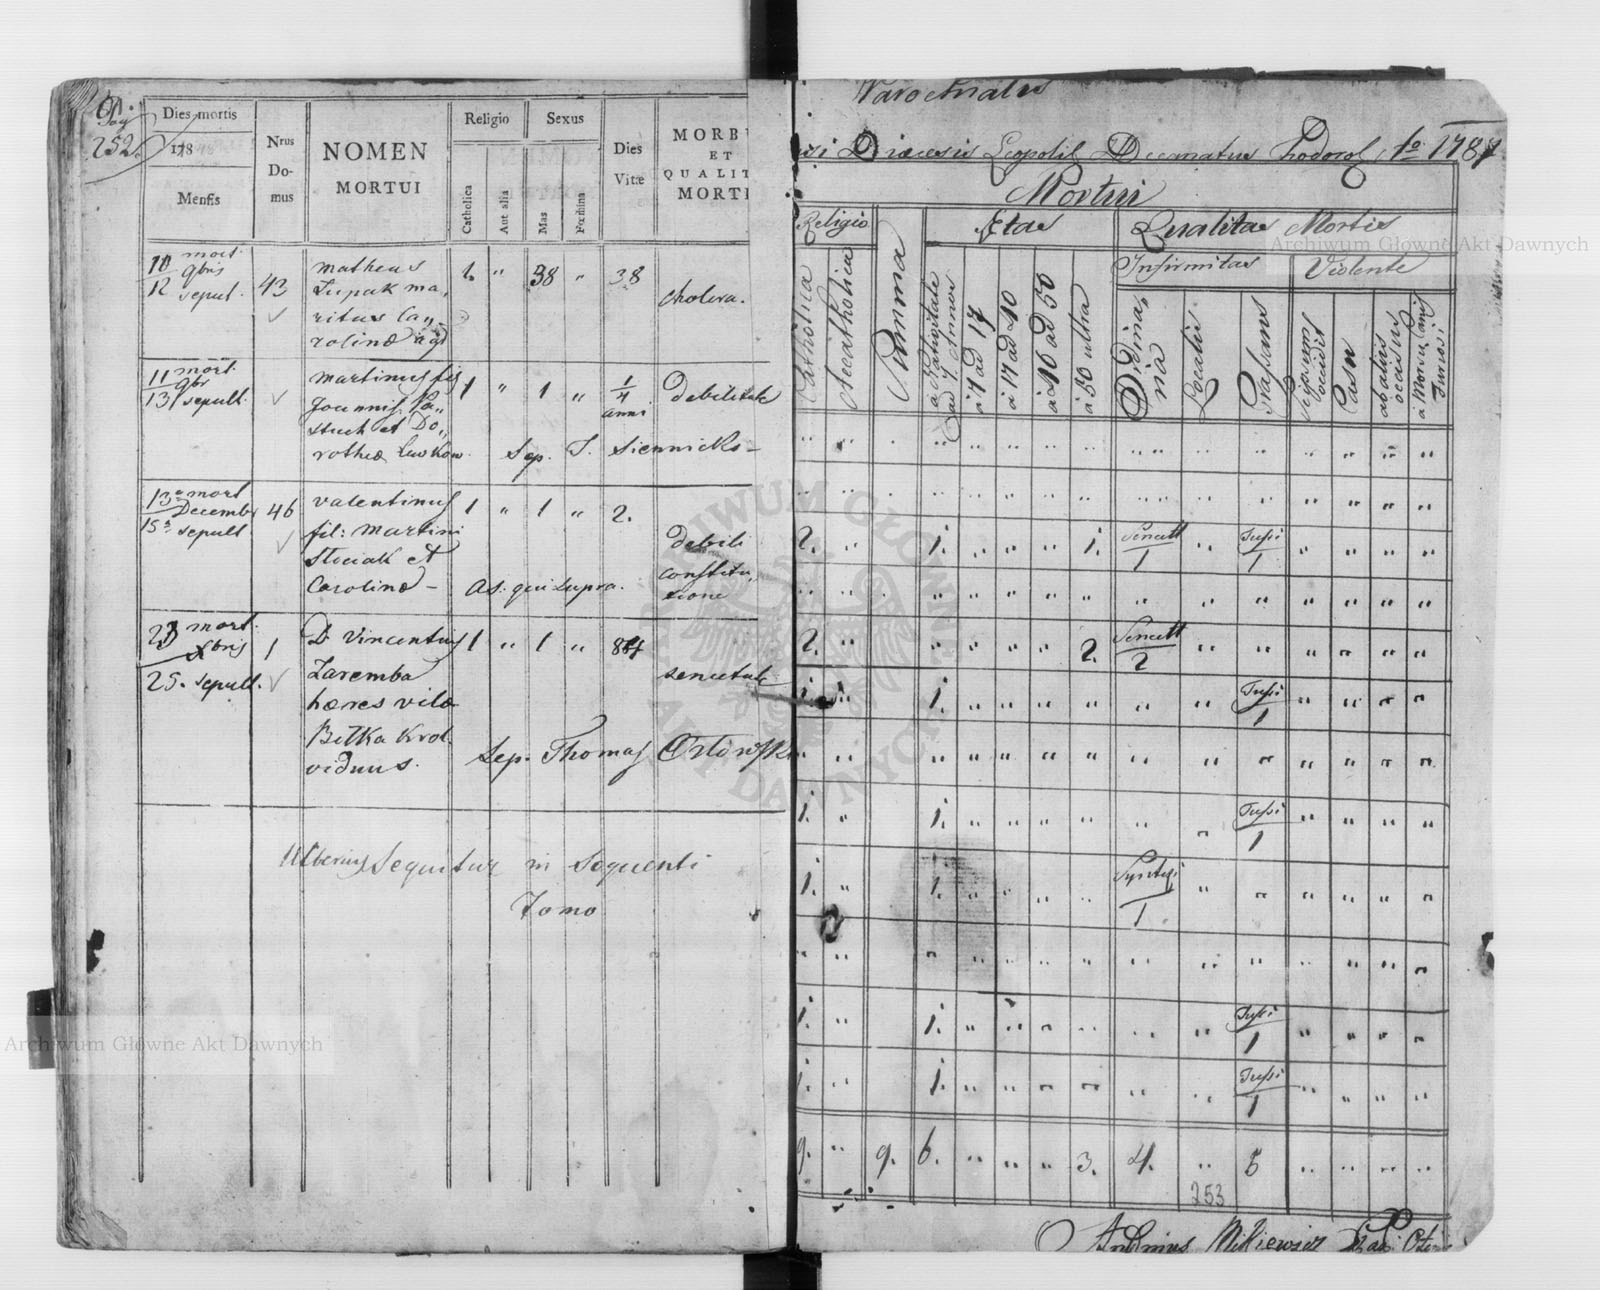 Pag
252.
Dies mortis
178
Mensis
Nrus
Do-
mus
NOMEN
MORTUI
Religio
Catholica
Aut alia
Sexus
Mas
Fœmina
Dies
Vitæ
MORBU
ET
QUALIT
MORTI
10 mort.
9bris
12 sepult.
43
Matheus
Supak ma,
ritus Ca,,
rolinæ
1 " 38 " 38
cholera.
11 mort.
9br
13 sepult.
Martinus fil
Joannis
stuch et Do,,
rothea Luckow
1 " 1 " 1/4
anni
Debilitate
Sep. J. Siennicki
13 mort
December
15 sepult
46
Valentinus
fil: Martini
Stociak et
Carolinæ
1 " 1 " 2.
debili
constitu,
tione
As. qui supra.
23 mort.
Xbris
25. sepult.
1
D. Vincentius
Zaremba
hæres vilæ
Bitka Krol.
viduus.
1 " 1 " 84
senectute
Sep. Thomas Orlowski
Ulterius Sequitur in Sequenti
Tomo
Parochialis
Diœcesis Leopolis Decanatus Chodorol 1787
Mortui
Religio
Catholica
Accatholica
Summa
Ætas
a Nativitate
ad 7 Annos
à 7 ad 17
à 17 ad 40
à 40 ad 50
à 50 ultra
Qualitas Mortis
Infirmitas
Ordina,
ria
Localis
Grassans
Violente
Seipsum
occidit
Casu
ab aliis
occisus
à Morsu Canis
furiosi
2. " 1. " " " 1. Senectt 1 " Tussi 1
2. " " " " " 2. Senectt 2
1. " 1. Tussi 1
1. " 1. Tussi 1
1. " 1. 1
1. " 1. Tussi 1
1. " 1. Tussi 1
9. " 9. 6. " " " 3. 4. " 5
253
Antonius Mikiewicz
Archiwum Główne Akt Dawnych
Archiwum Główne Akt Dawnych
ARCHIWUM GŁÓWNE AKT DAWNYCH